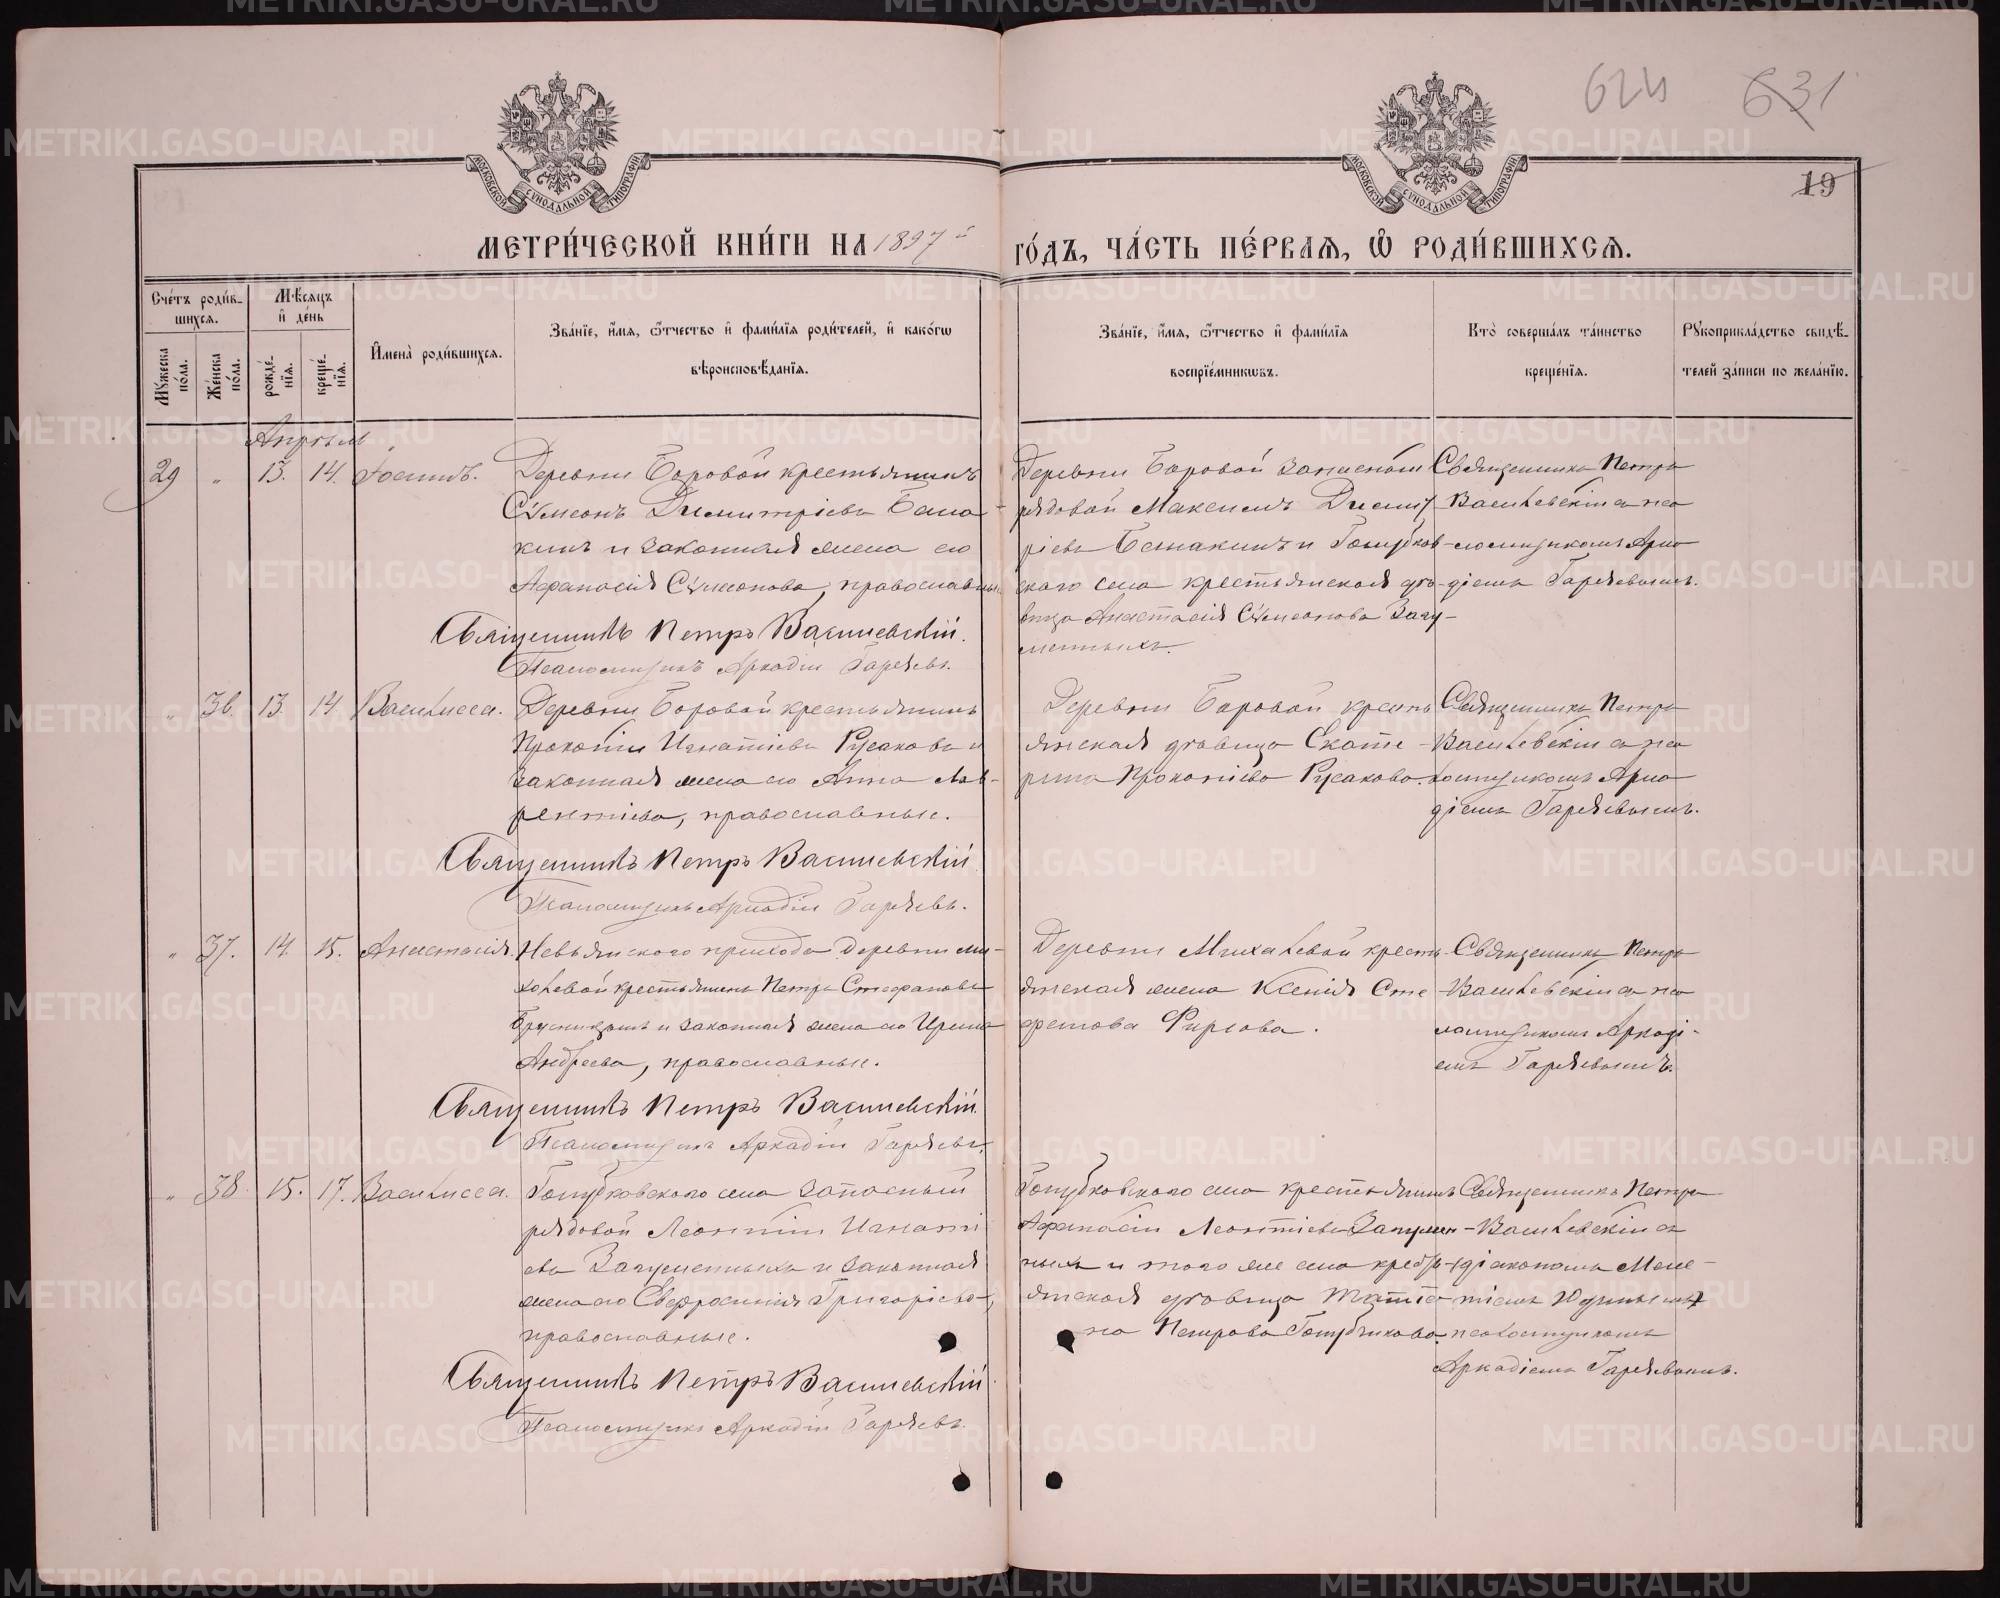 624 631
19
МОСКОВСКОЙ СѴНОДАЛЬНОЙ ТИПОГРАФІИ
МОСКОВСКОЙ СѴНОДАЛЬНОЙ ТИПОГРАФІИ
МЕТРИ́ЧЕСКОЙ КНИ́ГИ НА 1897 й
ГО́ДЪ, ЧА́СТЬ ПЕ́РВАѦ, Ѽ РОДИ́ВШИХСѦ.
Сче́тъ роди́в-
шихсѧ.
Мꙋ́жеска по́ла.
Же́нска по́ла.
Мѣ́сѧцъ и҆ де́нь
рожде́-нїѧ.
креще́-нїѧ.
И҆мена̀ роди́вшихсѧ.
Зва́нїе, и҆́мѧ, ѻ҆́тчество и҆ фами́лїѧ роди́телей, и҆ како́гѡ
вѣроисповѣ́данїѧ.
Зва́нїе, и҆́мѧ, ѻ҆́тчество и҆ фами́лїѧ
воспрїе́мникѡвъ.
Кто̀ соверша́лъ та́инство
креще́нїѧ.
Рꙋкоприкла́дство свидѣ́-
телей за́писи по жела́нїю.
Апрѣль
29 „ 13. 14. Іосифъ.
Деревни Боровой крестьянинъ
Сѵмеонъ Димитріевъ
и законная жена его
Афанасія Сѵмеонова, православные
Священникъ Петръ Василевскій.
Псаломщикъ Аркадій Гаряевъ.
Деревни Боровой запасный
рядовой Максимъ Димит-
ріевъ и Голубков-
скаго села крестьянская дѣ-
вица Анастасія Сѵмеонова Загу-
менныхъ.
Священникъ Петръ
Василевскій съ пса-
ломщикомъ Арка-
діемъ Гаряевымъ.
„ 36. 13. 14. Василисса.
Деревни Боровой крестьянинъ
Прокопій Игнатіевъ Русаковъ и
законная жена его Анна Лав-
рентіева, православные.
Священникъ Петръ Василевскій
Псаломщикъ Аркадій Гаряевъ.
Деревни Боровой кресть
янская дѣвица Екате-
рина Прокопіева Русакова.
Священникъ Петръ
Василевскій съ пса
ломщикомъ Арка
діемъ Гаряевымъ.
„ 37. 14. 15. Анастасія.
Невьянскаго прихода деревни Ми-
халевой крестьянинъ Петръ Стефановъ
Брусницынъ и законная жена его Ирина
Андреева, православные.
Священникъ Петръ Василевскій
Псаломщикъ Аркадій Гаряевъ.
Деревни Михалевой кресть-
янская жена Ксенія Сте
фанова Фирсова.
Священникъ Петръ
Василевскій съ пса
ломщикомъ Аркаді-
емъ Гаряевымъ.
„ 38. 15. 17. Василисса.
Голубковскаго села запасный
рядовой Леонтій Игнаті
евъ Загуменныхъ и законная
жена его Евфросинія Григоріева,
православные.
Священникъ Петръ Василевскій
Псаломщикъ Аркадій Гаряевъ.
Голубковскаго села крестьянинъ
Афанасій Леонтіевъ Загумен-
ныхъ и того же села кресть-
янская дѣвица Татіа-
на Петрова Голубчикова.
Священникъ Петръ
Василевскій съ
діакономъ
псаломщикомъ
Аркадіемъ Гаряевымъ.
METRIKI.GASO-URAL.RU